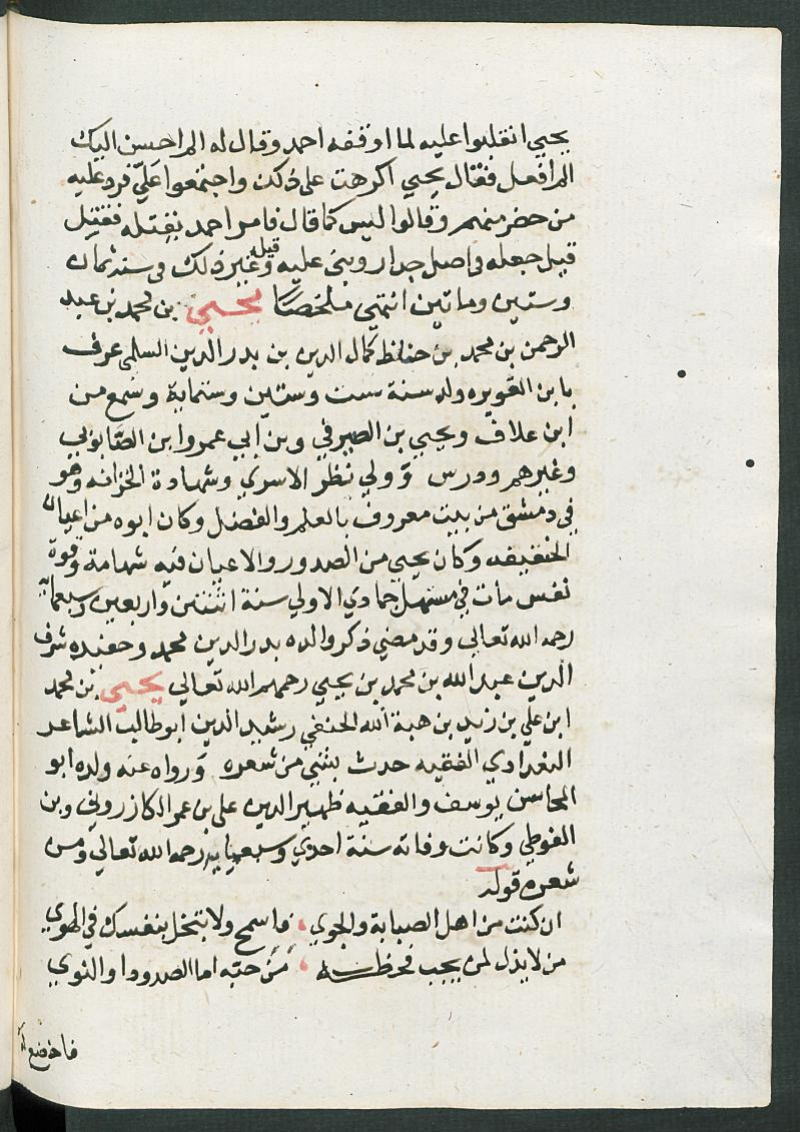 يحيي انقلبوا عليه لما اوقفه احمد وقال له الم احسن اليك
الم افعل فقال يحيي اكرهت على ذلك واجتمعوا علي فرد عليه
من حضر منهم وقالوا ليس كما قال فامر احمد بقتله فقتل
قيل جعله في اصل جدار وبنى عليه وقيل غير ذلك في سنة ثمان
وستين وماتين انتهي ملخصا يحيي بن محمد بن عبد
الرحمن بن محمد بن حافظ كمال الدين بن بدر الدين السلمي عرف
بابن الغويره ولد سنة ست وستين وستماية وسمع من
ابن علاف ويحيي بن الصيرفي وبن ابي عمر وابن الصابوني
وغيرهم ودرس وولي نظر الاسري وشهادة الخزانه وهو
في دمشق من بيت معروف بالعلم والفضل وكان ابوه من اعيان
الحنفيه وكان يحيي من الصدور والاعيان فيه شهامة وقوة
نفس مات في مستهل جمادي الاولي سنة اثنتين واربعين وسبعماية
رحمه الله تعالي وقد مضي ذكر والده بدر الدين محمد وحفيده شرف
الدين عبد الله بن محمد بن يحيي رحمهم الله تعالي يحيي بن محمد
ابن علي بن زيد بن هبة الله الحنفي رشيد الدين ابو طالب الشاعر
البغدادي الفقيه حدث بشي من شعره ورواه عنه ولده ابو
المحاسن يوسف والفقيه ظهير الدين علي بن عمر الكازروني وبن
الفوطي وكانت وفاته سنة احدي وسبعمايه رحمه الله تعالي ومن
شعره قوله
ان كنت من اهل الصبابة والجوي فاسمح ولا تبخل بنفسك في الهوي
من لا يذل لمن يحب فحظه من حبه اما الصدود او النوي
فاخضع له